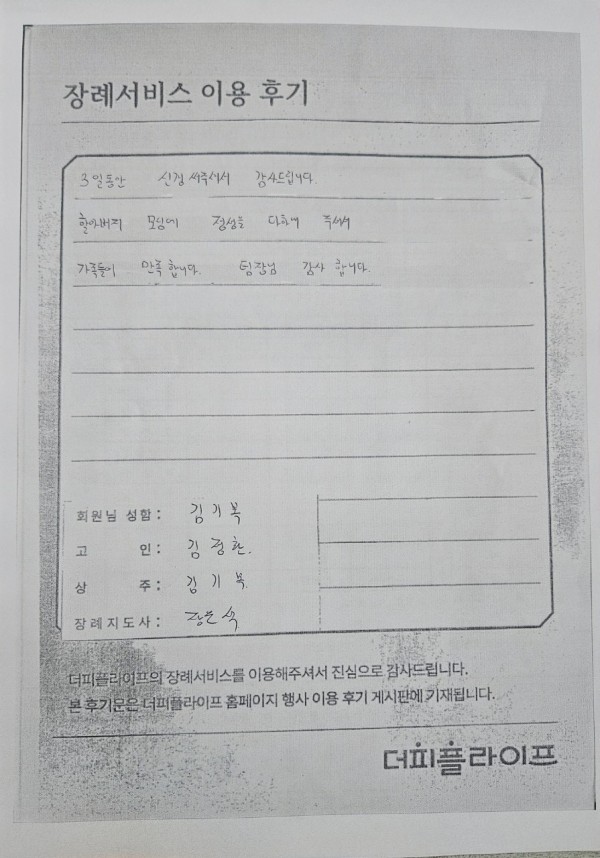 장례서비스 이용 후기
3일동안 신경써주셔서 감사드립니다.
할아버지 모심에 정성을 다하여 주셔서
가족들이 만족합니다. 팀장님 감사합니다.
회원님 성함: 김기복
고 인: 김정환.
상 주: 김기복.
장례지도사: 장운석
더피플라이프의 장례서비스를 이용해주셔서 진심으로 감사드립니다.
본 후기문은 더피플라이프 홈페이지 행사 이용 후기 게시판에 기재됩니다.
더피플라이프